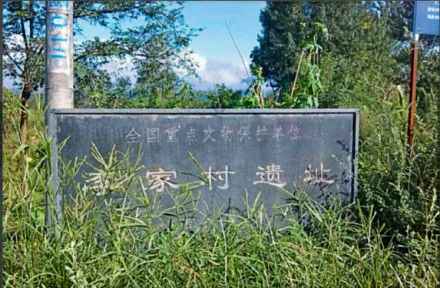 全国重点文物保护单位
家村遗址